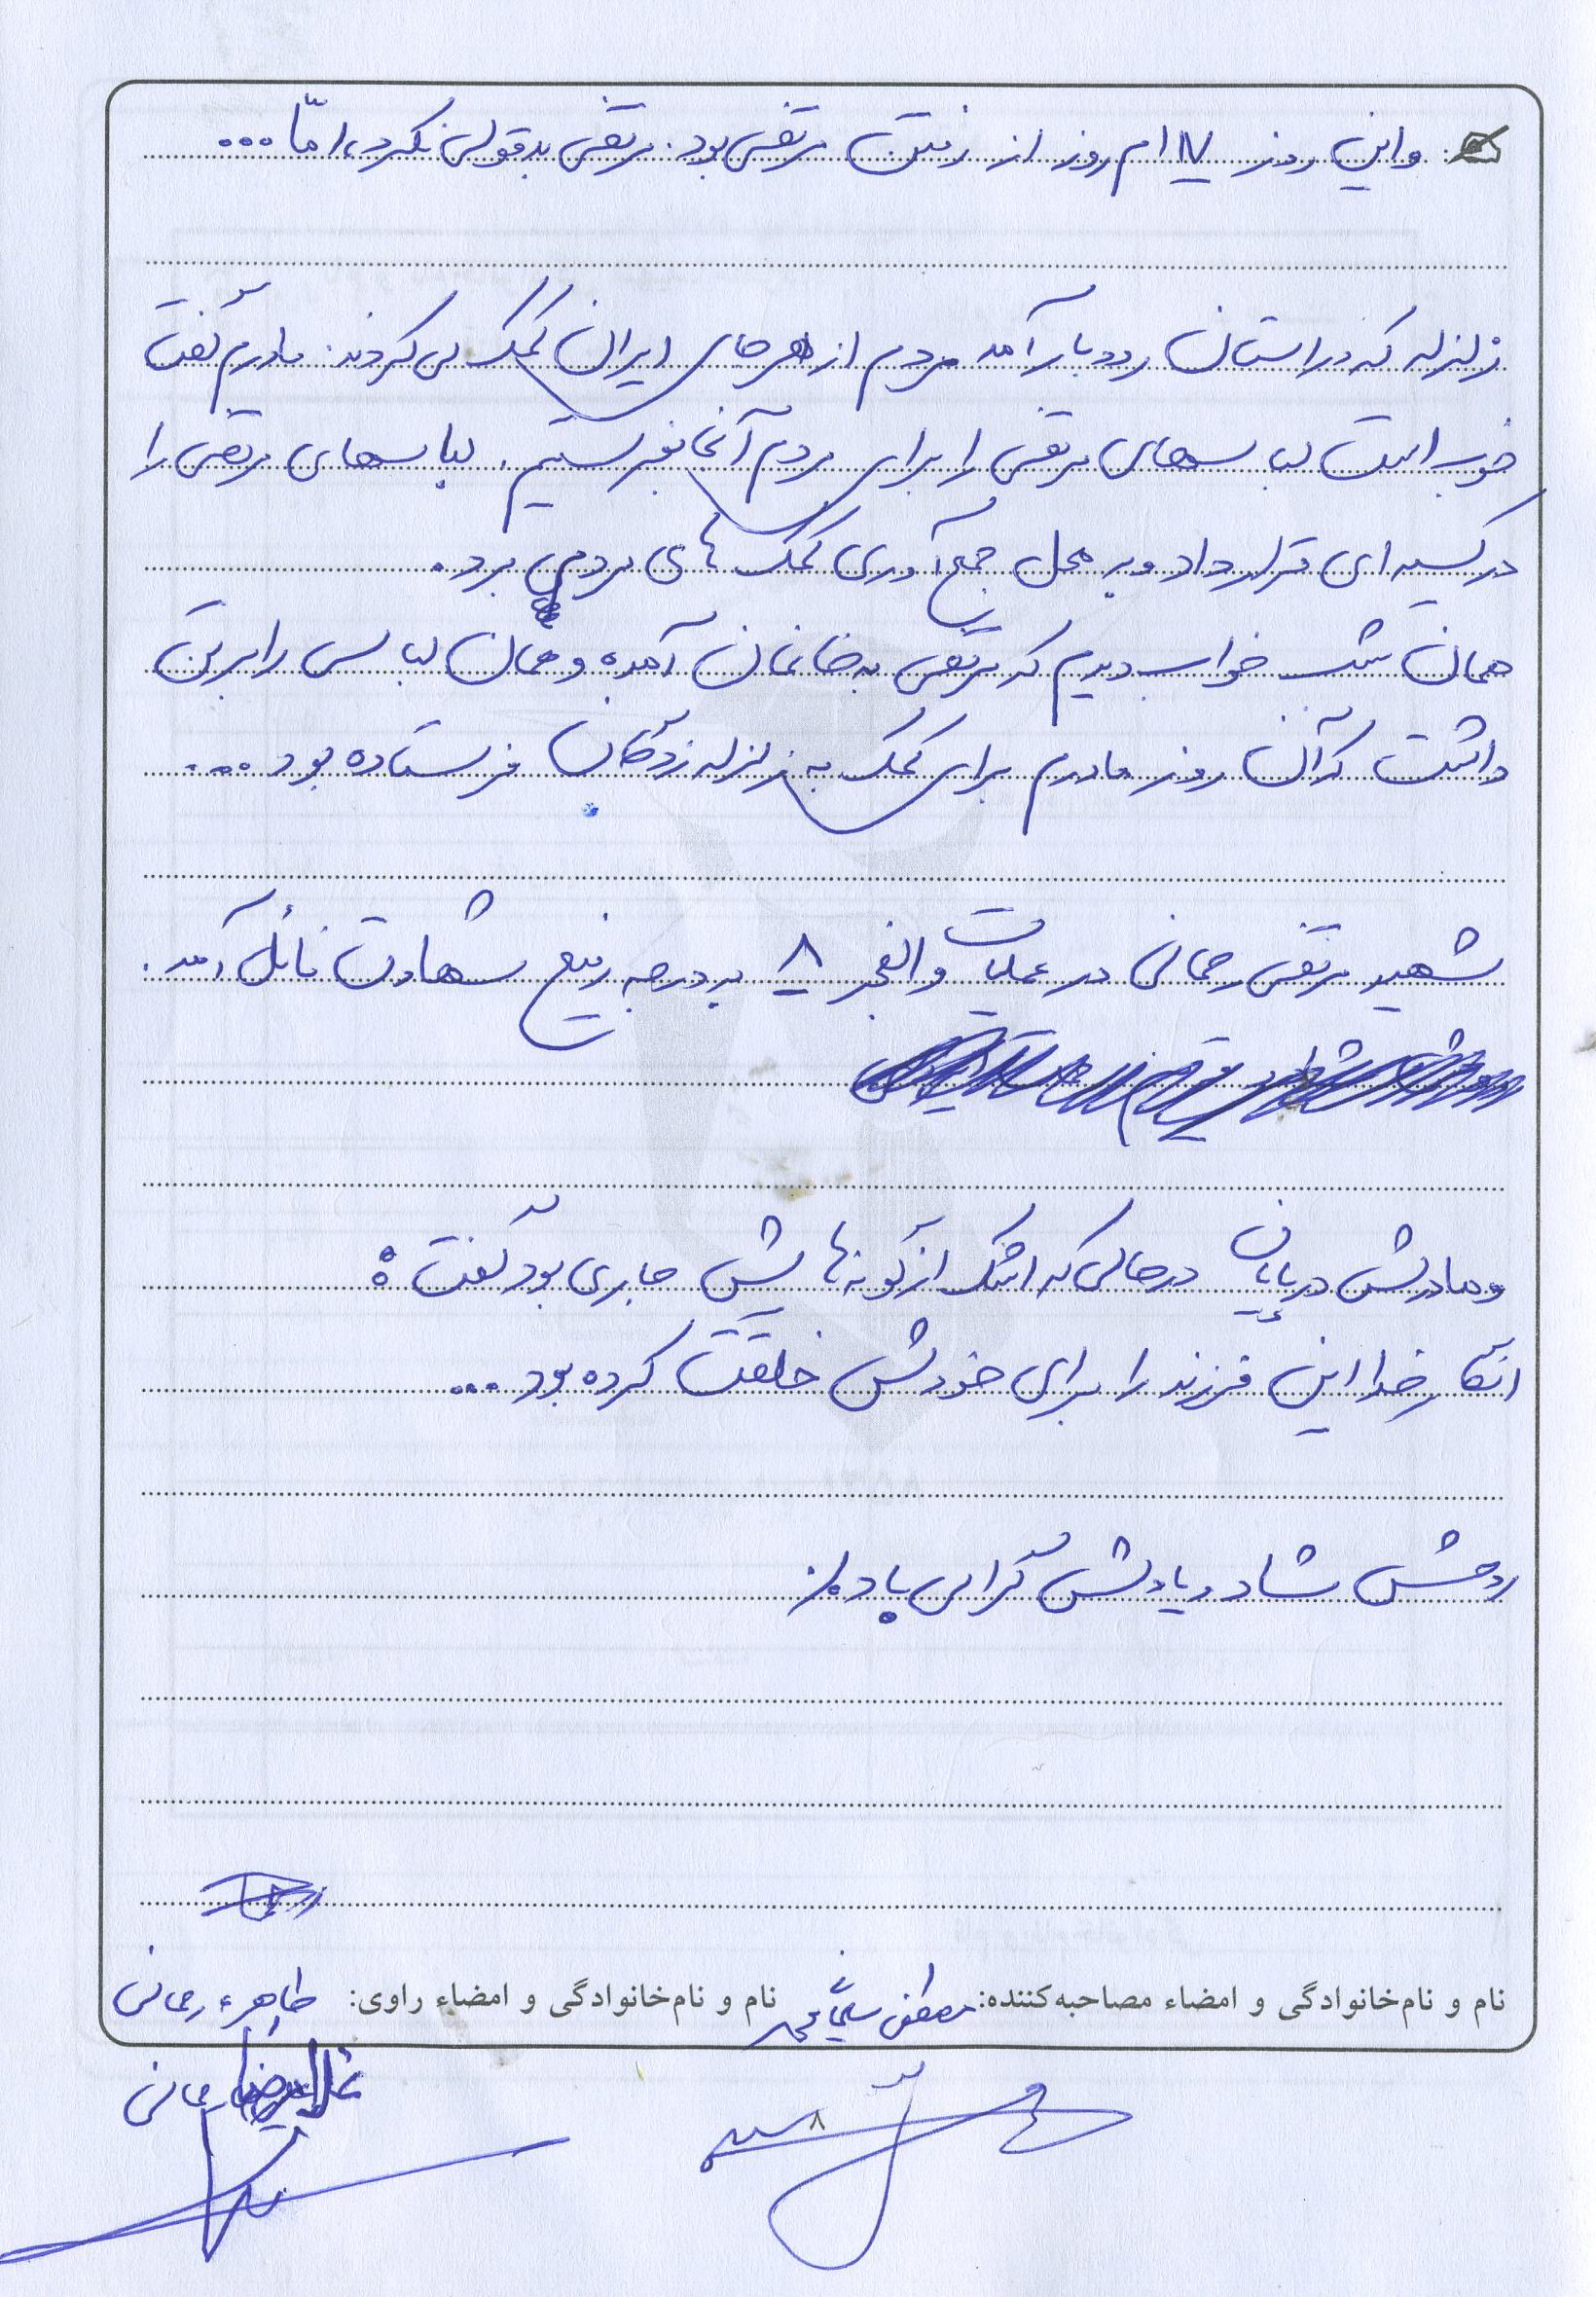 و این روز ۱۷ ام روز از رفتن مرتضی بود. مرتضی بدقولی نکرد، امّا ...
زلزله که در استان رودبار آمد مردم از هر جای ایران کمک می کردند. مادرم گفت
خوب است لباسهای مرتضی را برای مردم آنجا بفرستیم. لباسهای مرتضی را
در کیسه ای قرار داد و به محل جمع آوری کمک های مردمی برد.
همان شب خواب دیدم که مرتضی به خانمان آمده و همان لباس را بر تن
داشت که آن روز مادرم برای کمک به زلزله زدگان فرستاده بود ...
شهید مرتضی رحمانی در عملیات والفجر ۸ به درجه رفیع شهادت نائل آمد.
و مادرش در پایان در حالی که اشک از گونه هایش جاری بود گفت :
انگار خدا این فرزند را برای خودش خلقت کرده بود ...
روحش شاد و یادش گرامی باد./.
نام و نام‌خانوادگی و امضاء مصاحبه‌کننده: مصطفی نام و نام‌خانوادگی و امضاء راوی: طاهره رحمانی
رحمانی
۸